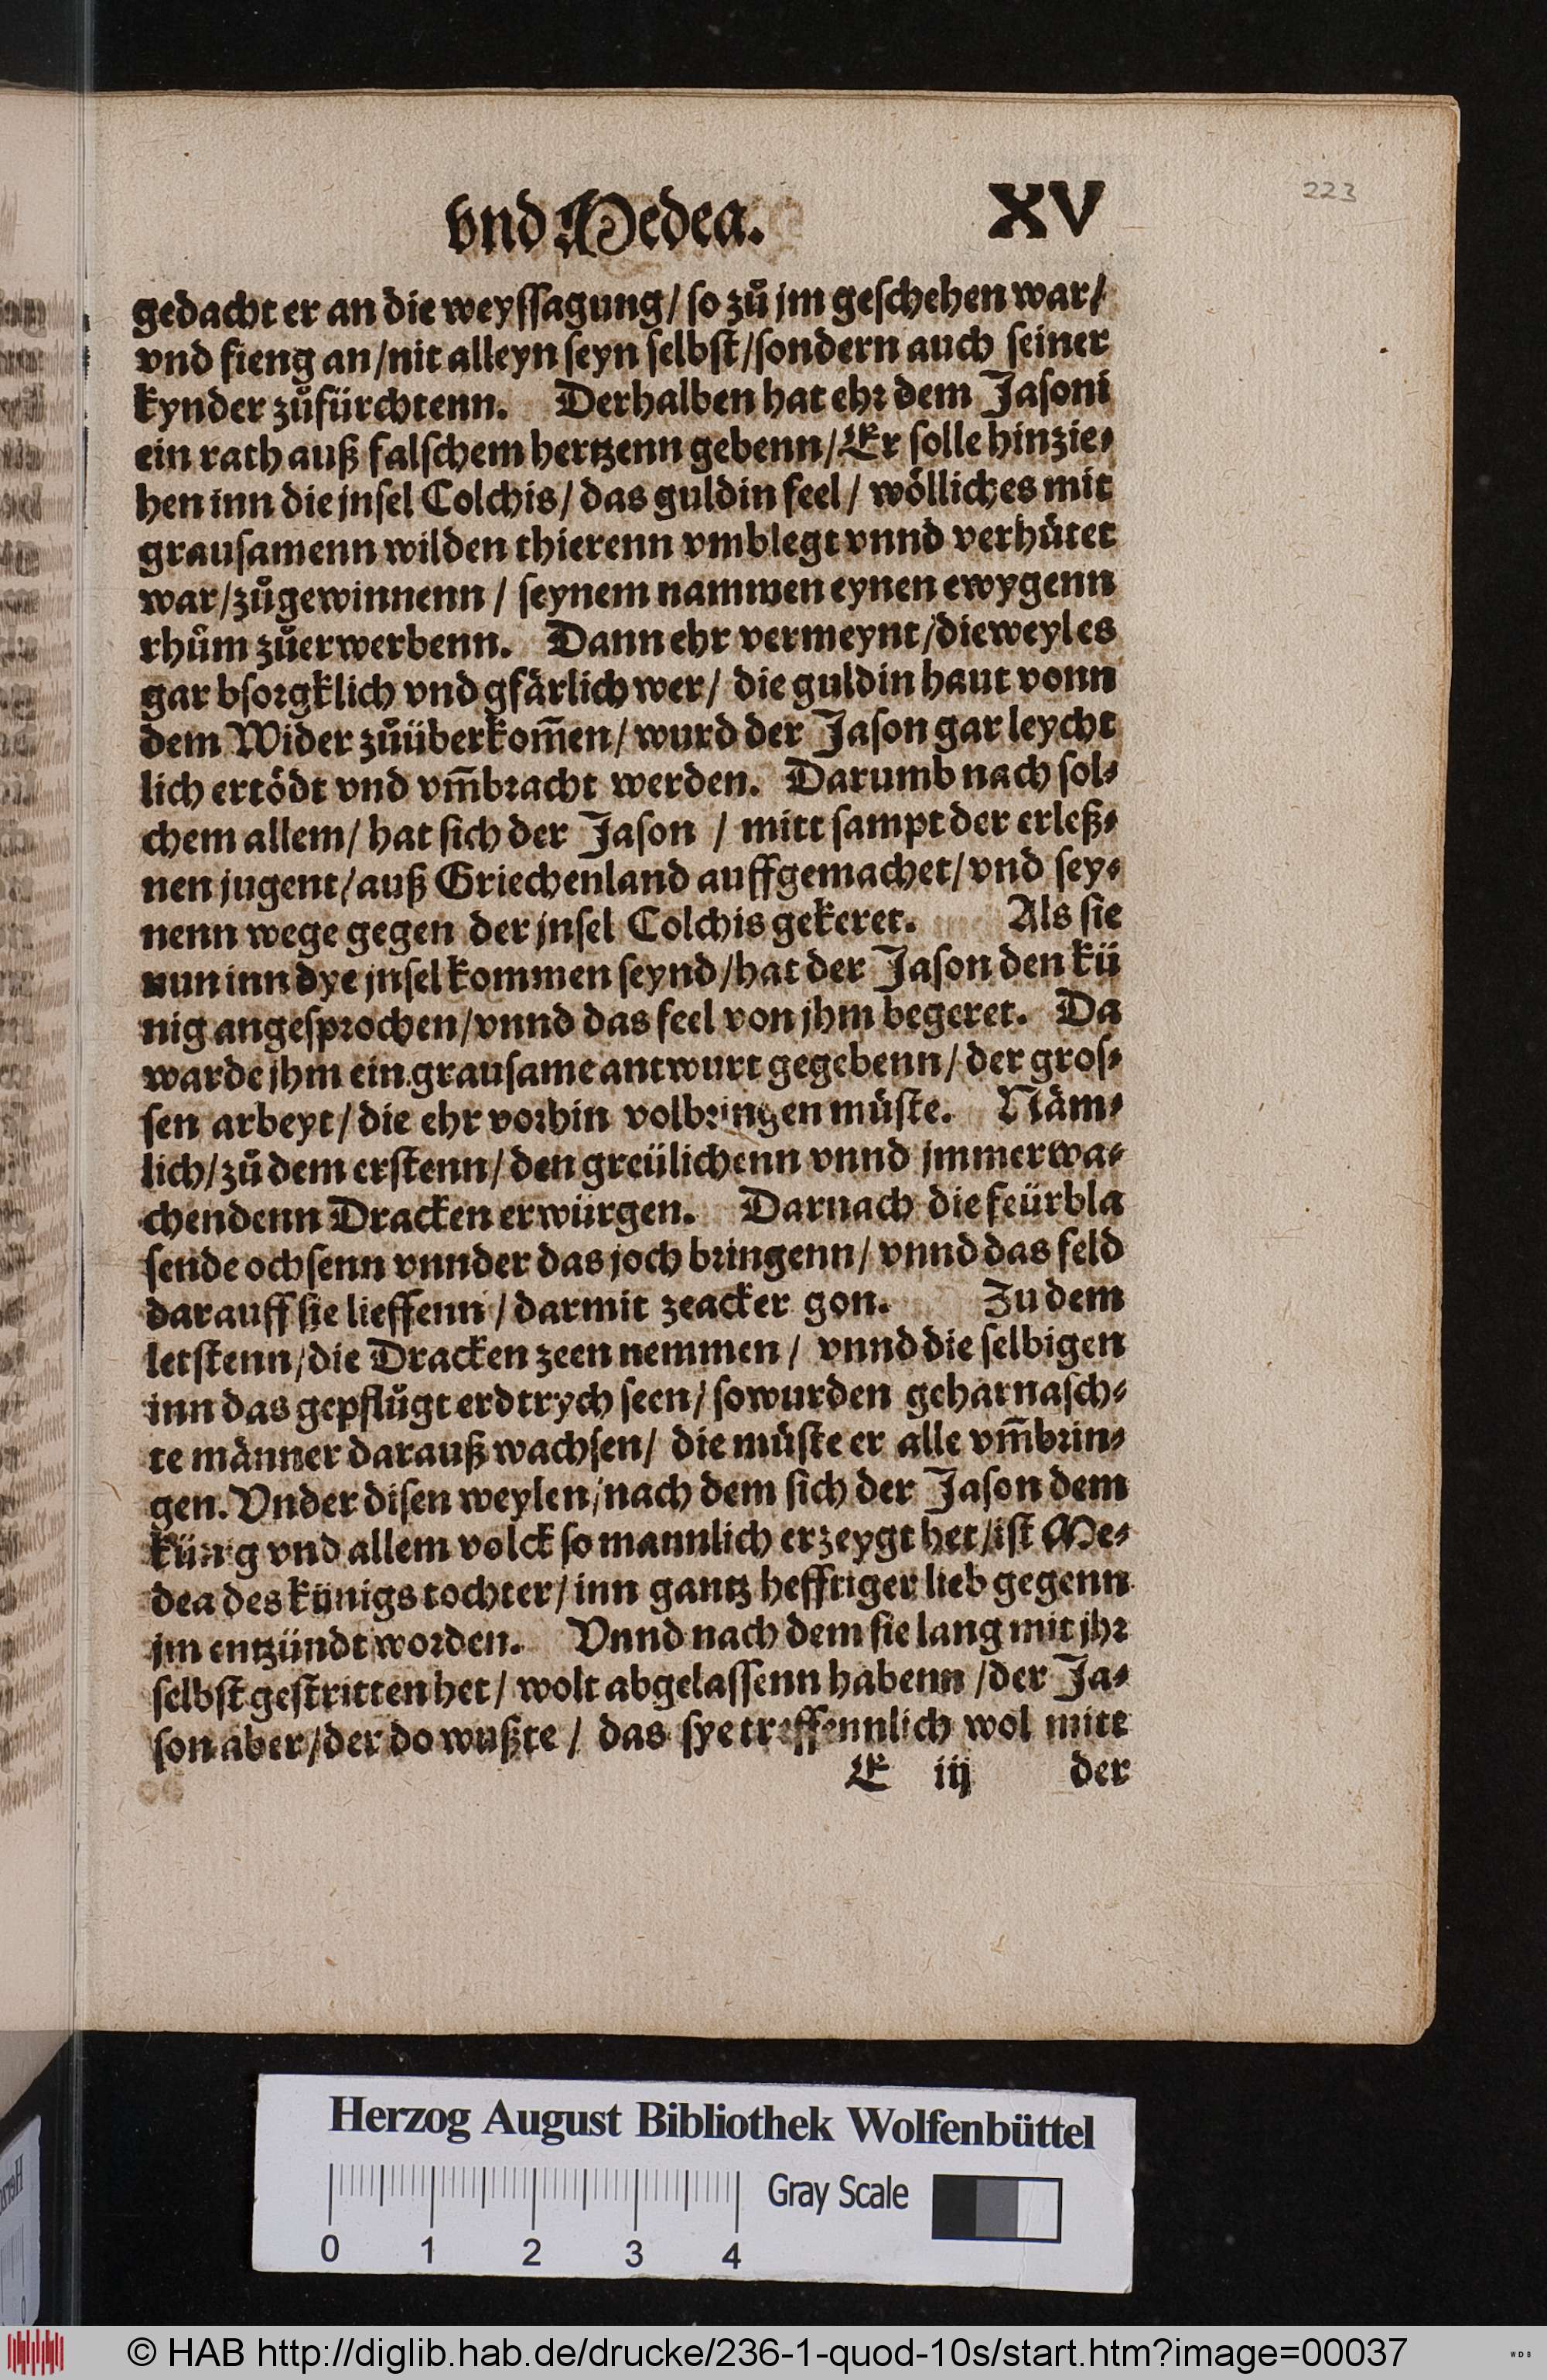 vnd Medea. XV
223
gedacht er an die weyſſagung/ ſo zů jm geſchehen war/
vnd fieng an/nit alleyn ſeyn ſelbſt/ſondern auch ſeiner
kynder zůfürchtenn. Derhalben hat ehr dem Jaſoni
ein rath auß falſchem hertzenn gebenn/Er ſolle hinzie⸗
hen inn die jnſel Colchis/ das guldin feel/ wölliches mit
grauſamenn wilden thierenn vmblegt vnnd verhütet
war/zůgewinnenn/ ſeynem nammen eynen ewygenn
rhům zůerwerbenn. Dann ehr vermeynt/dieweyl es
gar bſorgklich vnd gfärlich wer/ die guldin haut vonn
dem Wider zůüberkom̃en/ wurd der Jaſon gar leycht
lich ertödt vnd vm̃bracht werden. Darumb nach ſol⸗
chem allem/ hat ſich der Jaſon / mitt ſampt der erleß⸗
nen jugent/auß Griechenland auffgemachet/vnd ſey⸗
nenn wege gegen der jnſel Colchis gekeret. Als ſie
nun inn dye jnſel kommen ſeynd/hat der Jaſon den kü
nig angeſprochen/vnnd das feel von jhm begeret. Da
warde jhm ein grauſame antwurt gegebenn/ der groſ⸗
ſen arbeyt/die ehr vorhin volbringen müſte. Näm⸗
lich/zů dem erſtenn/den greülichenn vnnd jmmerwa⸗
chendenn Dracken erwürgen. Darnach die feürbla
ſende ochſenn vnnder das joch bringenn/ vnnd das feld
darauff ſie lieffenn / darmit zeacker gon. Zu dem
letſtenn/die Dracken zeen nemmen/ vnnd die ſelbigen
inn das gepflůgt erdtrych ſeen/ſo wurden geharnaſch⸗
te männer darauß wachſen/ die müſte er alle vm̃brin⸗
gen. Vnder diſen weylen/nach dem ſich der Jaſon dem
künig vnd allem volck ſo mannlich erzeygt het/iſt Me⸗
dea des künigs tochter/inn gantz hefftiger lieb gegenn
jm entzündt worden. Vnnd nach dem ſie lang mit jhr
ſelbſt geſtritten het/ wolt abgelaſſenn habenn /der Ja⸗
ſon aber/der do wußte/ das ſye treffennlich wol mitt
E iij der
Herzog August Bibliothek Wolfenbüttel
Gray Scale
0 1 2 3 4
© HAB http://diglib.hab.de/drucke/236-1-quod-10s/start.htm?image=00037
WDB